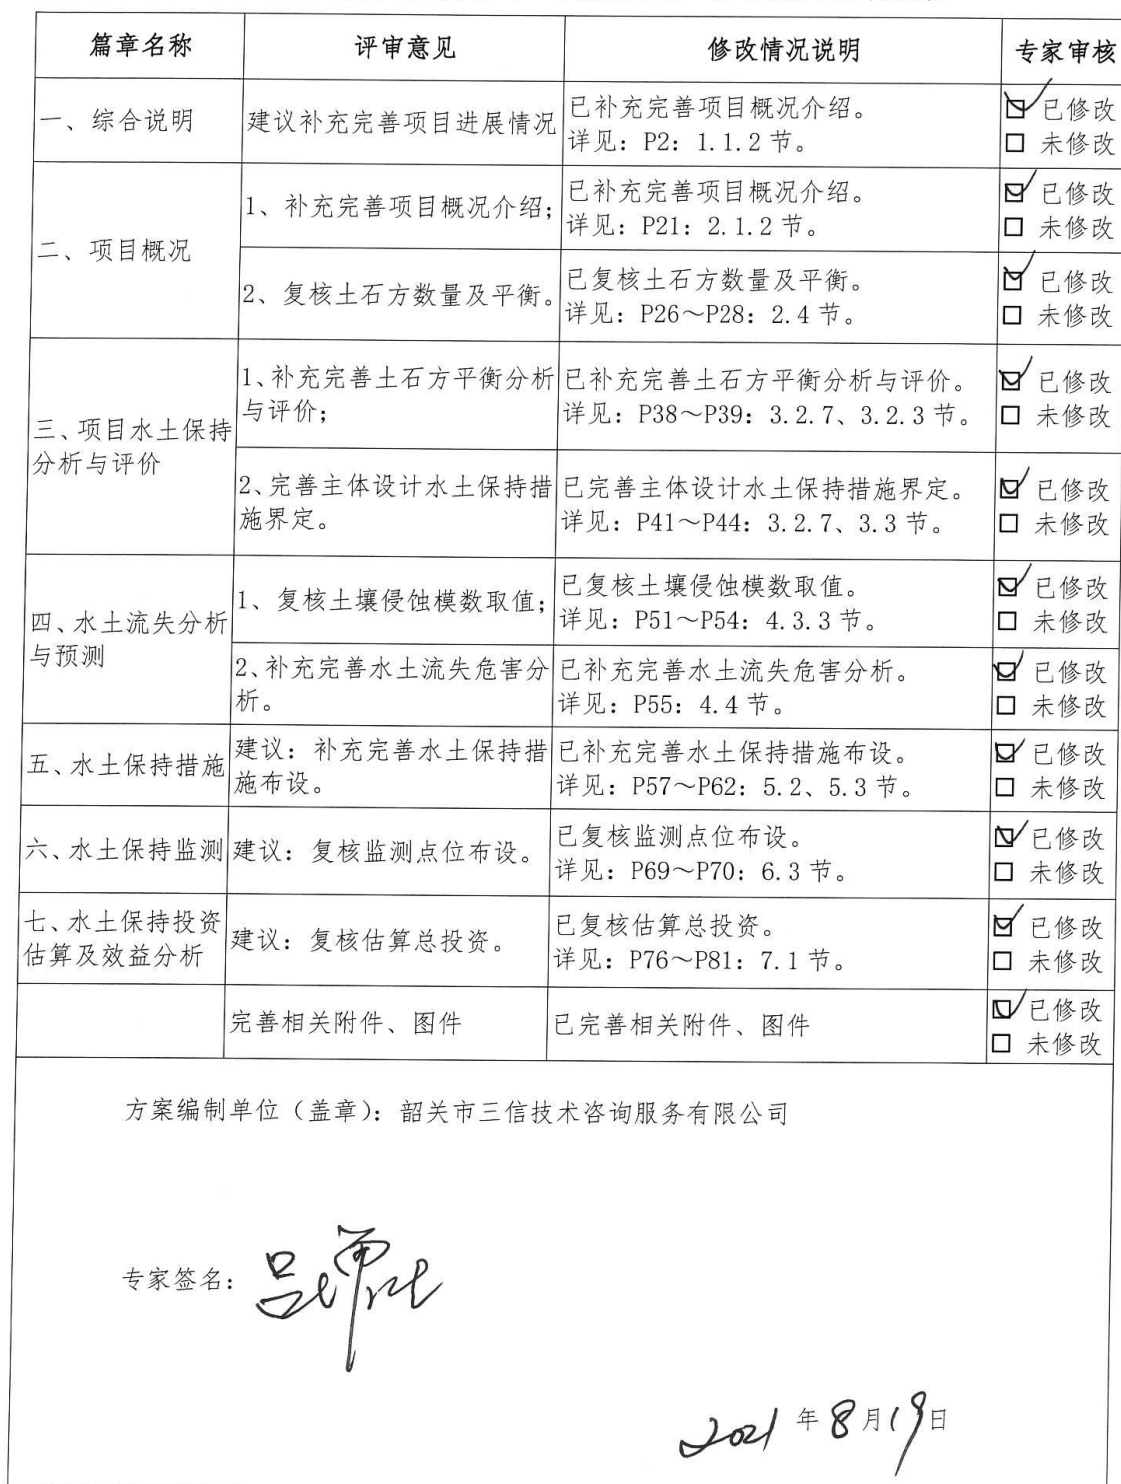 篇章名称 评审意见 修改情况说明 专家审核
一、综合说明 建议补充完善项目进展情况
已补充完善项目概况介绍。
详见：P2：1.1.2 节。
已修改
未修改
二、项目概况
1、补充完善项目概况介绍；
已补充完善项目概况介绍。
详见：P21：2.1.2 节。
已修改
未修改
2、复核土石方数量及平衡。
已复核土石方数量及平衡。
详见：P26～P28：2.4 节。
已修改
未修改
三、项目水土保持
分析与评价
1、补充完善土石方平衡分析
与评价；
已补充完善土石方平衡分析与评价。
详见：P38～P39：3.2.7、3.2.3 节。
已修改
未修改
2、完善主体设计水土保持措
施界定。
已完善主体设计水土保持措施界定。
详见：P41～P44：3.2.7、3.3 节。
已修改
未修改
四、水土流失分析
与预测
1、复核土壤侵蚀模数取值；
已复核土壤侵蚀模数取值。
详见：P51～P54：4.3.3 节。
已修改
未修改
2、补充完善水土流失危害分
析。
已补充完善水土流失危害分析。
详见：P55：4.4 节。
已修改
未修改
五、水土保持措施
建议：补充完善水土保持措
施布设。
已补充完善水土保持措施布设。
详见：P57～P62：5.2、5.3 节。
已修改
未修改
六、水土保持监测
建议：复核监测点位布设。
已复核监测点位布设。
详见：P69～P70：6.3 节。
已修改
未修改
七、水土保持投资
估算及效益分析
建议：复核估算总投资。
已复核估算总投资。
详见：P76～P81：7.1 节。
已修改
未修改
完善相关附件、图件
已完善相关附件、图件
已修改
未修改
方案编制单位（盖章）：韶关市三信技术咨询服务有限公司
专家签名：
2021 年 8 月 19 日